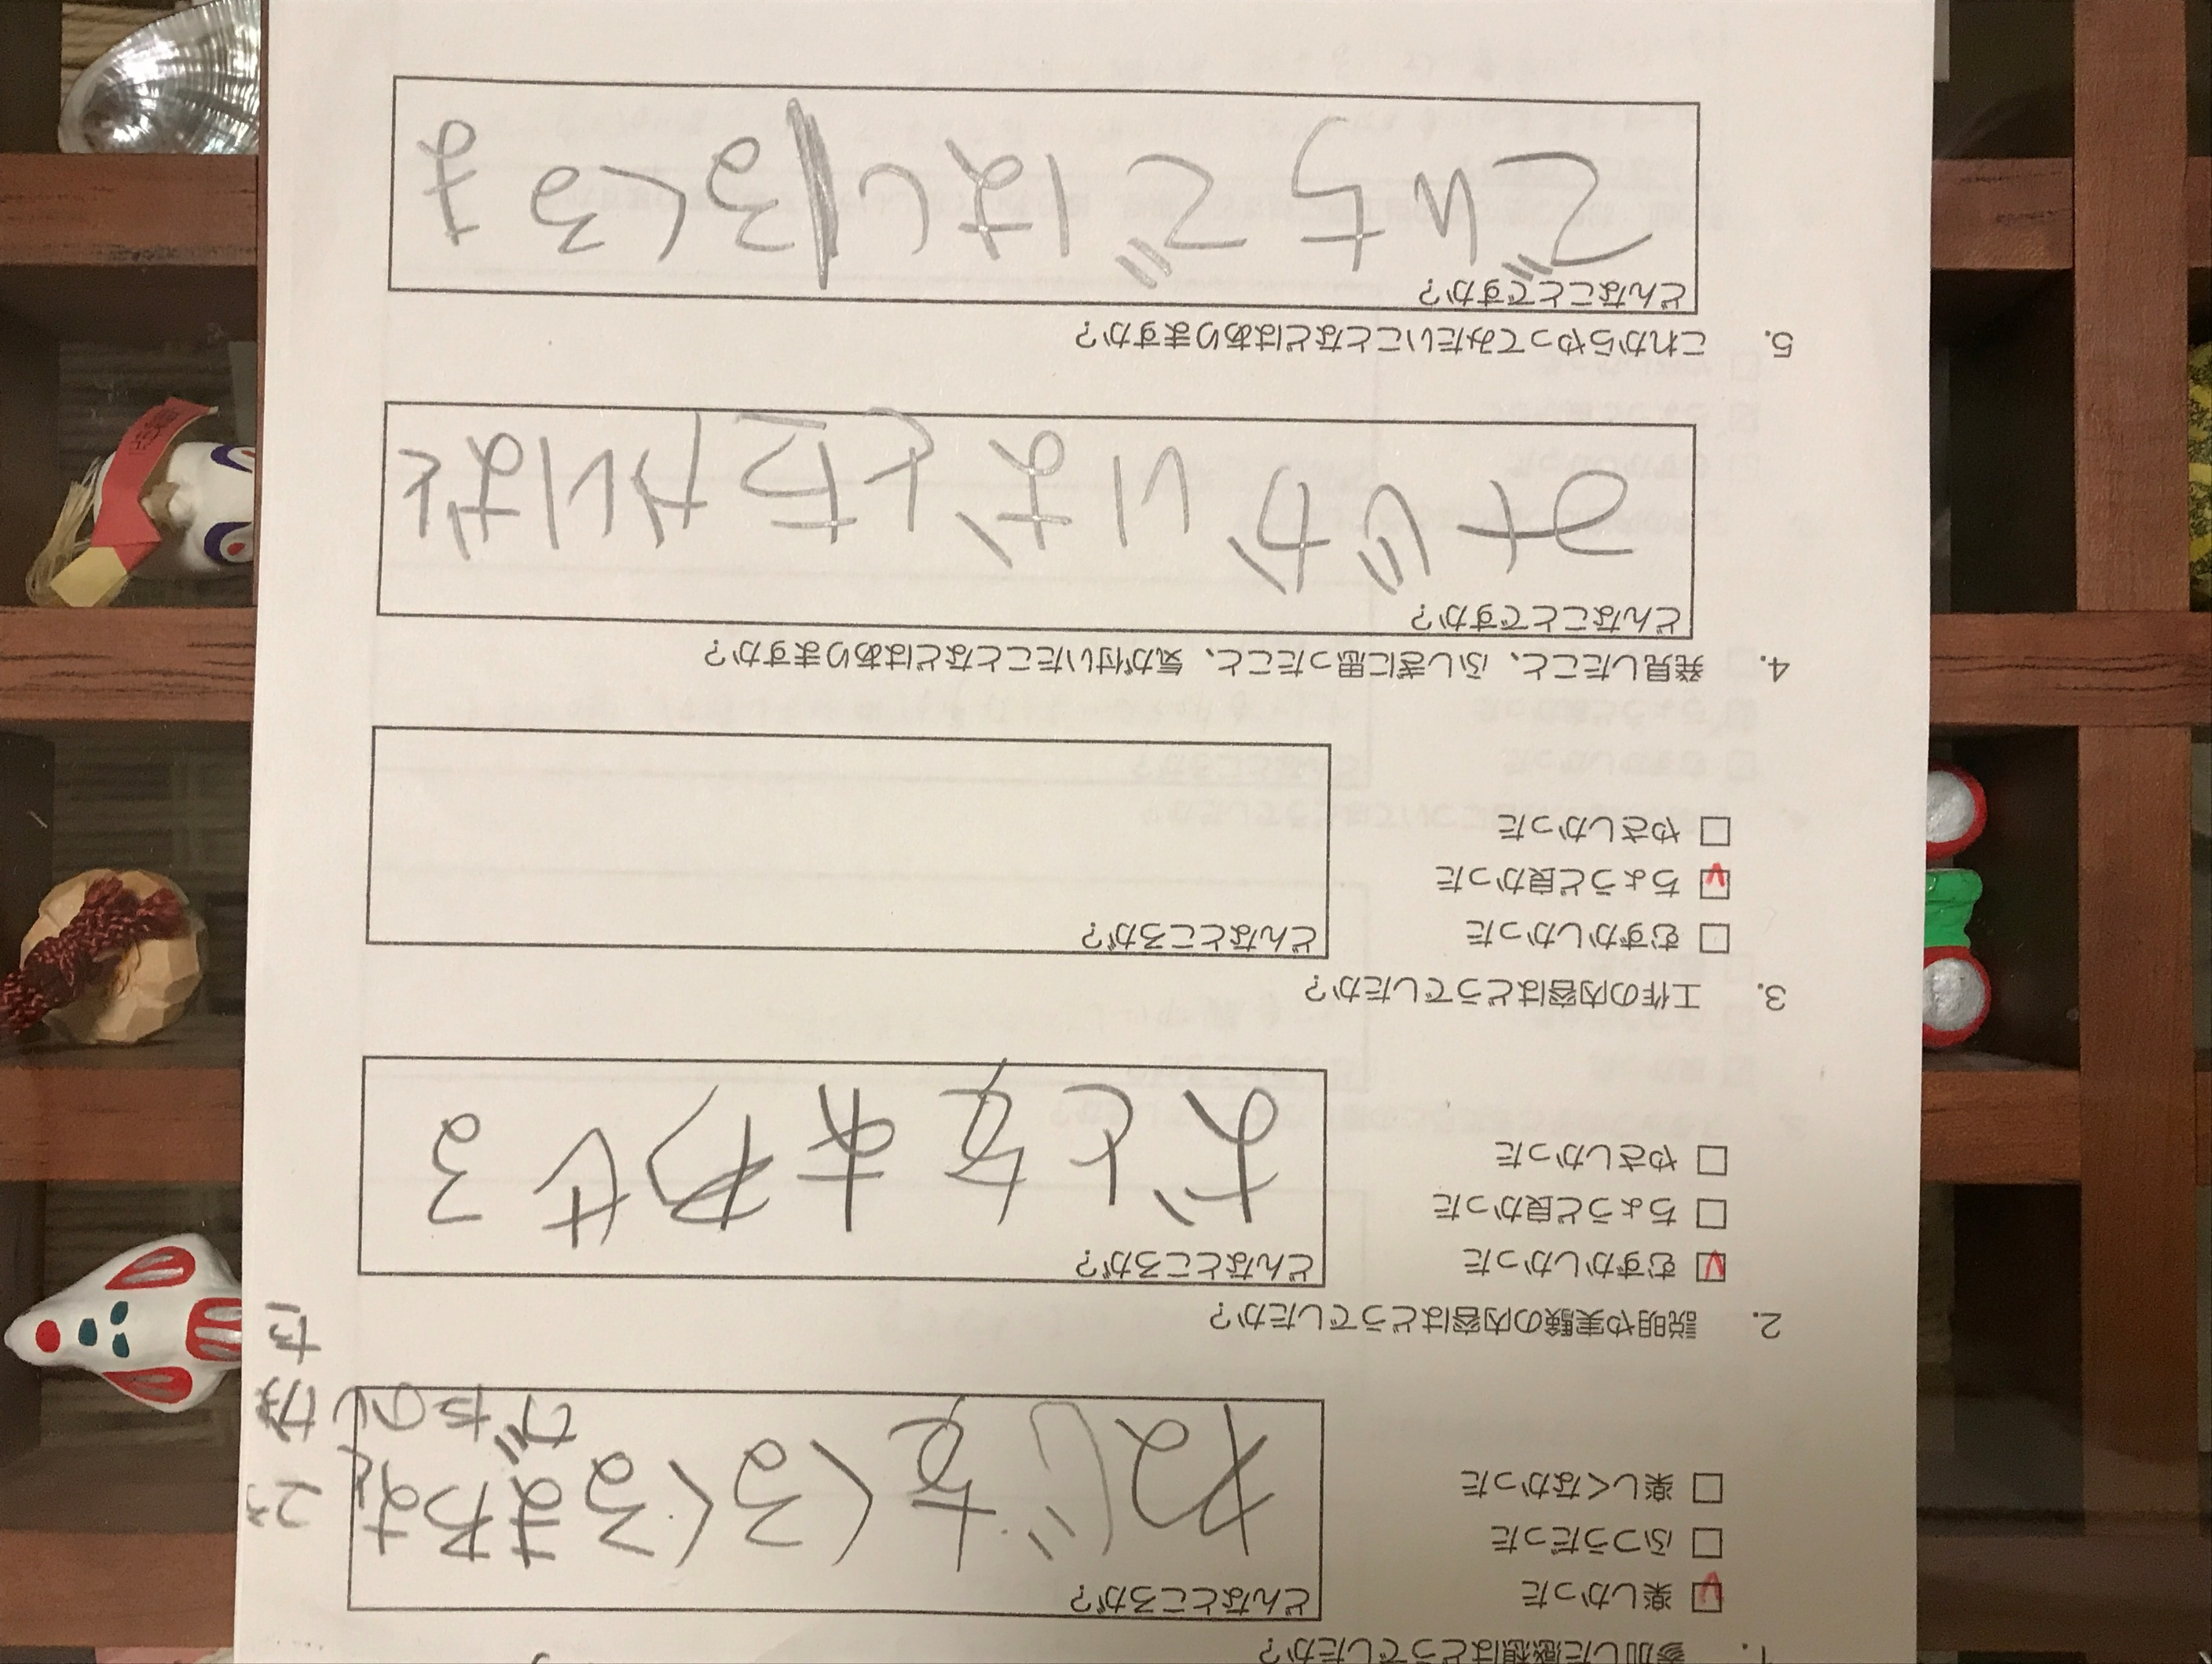 1. 参加した感想はどうでしたか?
楽しかった
ふつうだった
楽しくなかった
どんなところが?
ねじをくるくるまわすところ
がたのしかっ
た
2. 説明や実験の内容はどうでしたか?
むずかしかった
ちょうど良かった
やさしかった
どんなところが?
おとをあわせる
3. 工作の内容はどうでしたか?
むずかしかった
ちょうど良かった
やさしかった
どんなところが?
4. 発見したこと、ふしぎに思ったこと、気が付いたことなどはありますか?
どんなことですか?
5. これからやってみたいことなどはありますか?
どんなことですか?
でんちではしるくるま